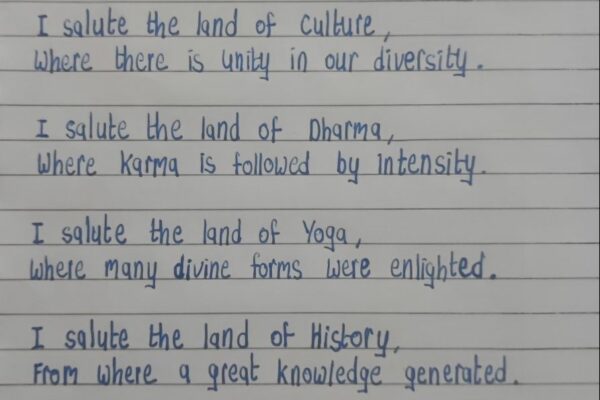 I salute the land of Culture,
Where there is unity in our diversity.
I salute the land of Dharma,
Where Karma is followed by intensity.
I salute the land of Yoga,
Where many divine forms were enlighted.
I salute the land of History,
From where a great knowledge generated.